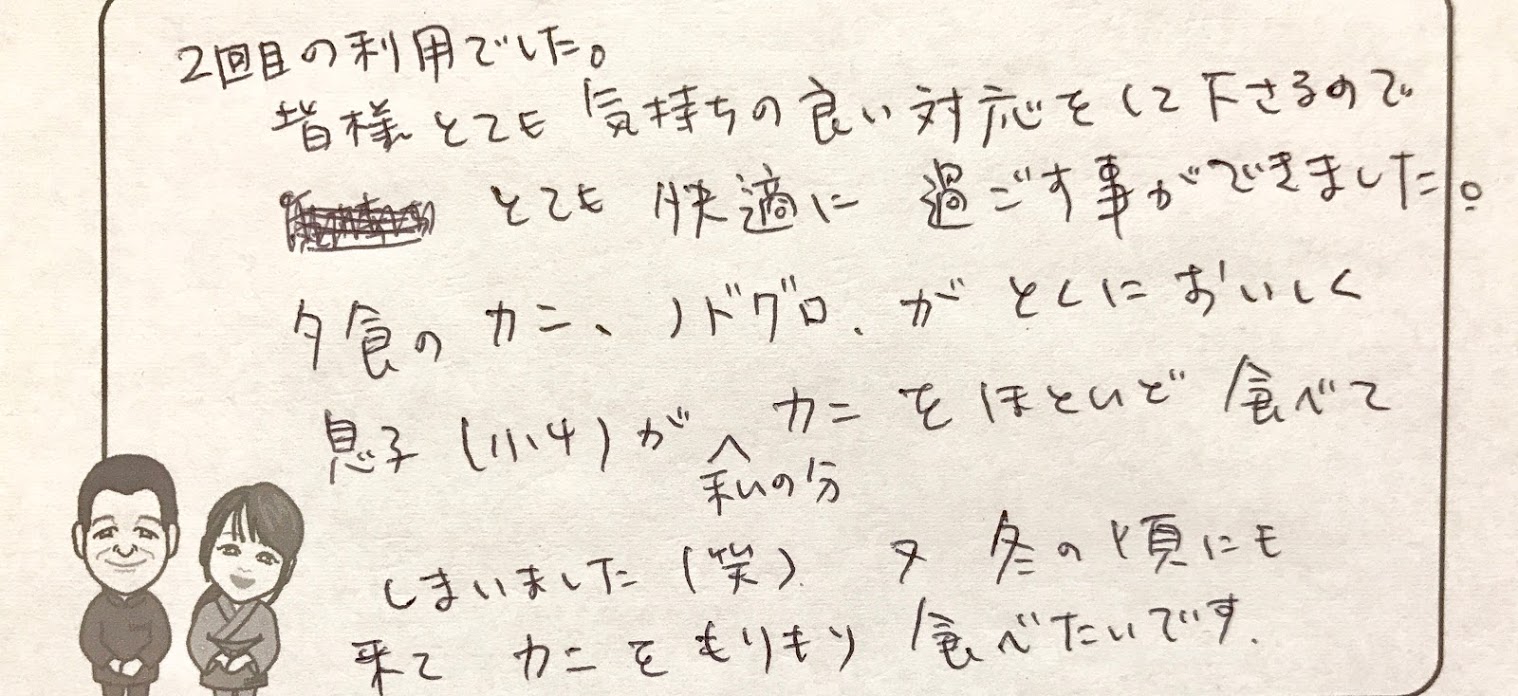 2回目の利用でした。
皆様とても気持ちの良い対応をして下さるので
とても快適に過ごす事ができました。
夕食のカニ、ノドグロ、がとくにおいしく
息子(小4)がカニをほとんど食べて
私の分
しまいました(笑). 又冬の頃にも
来てカニをもりもり食べたいです.